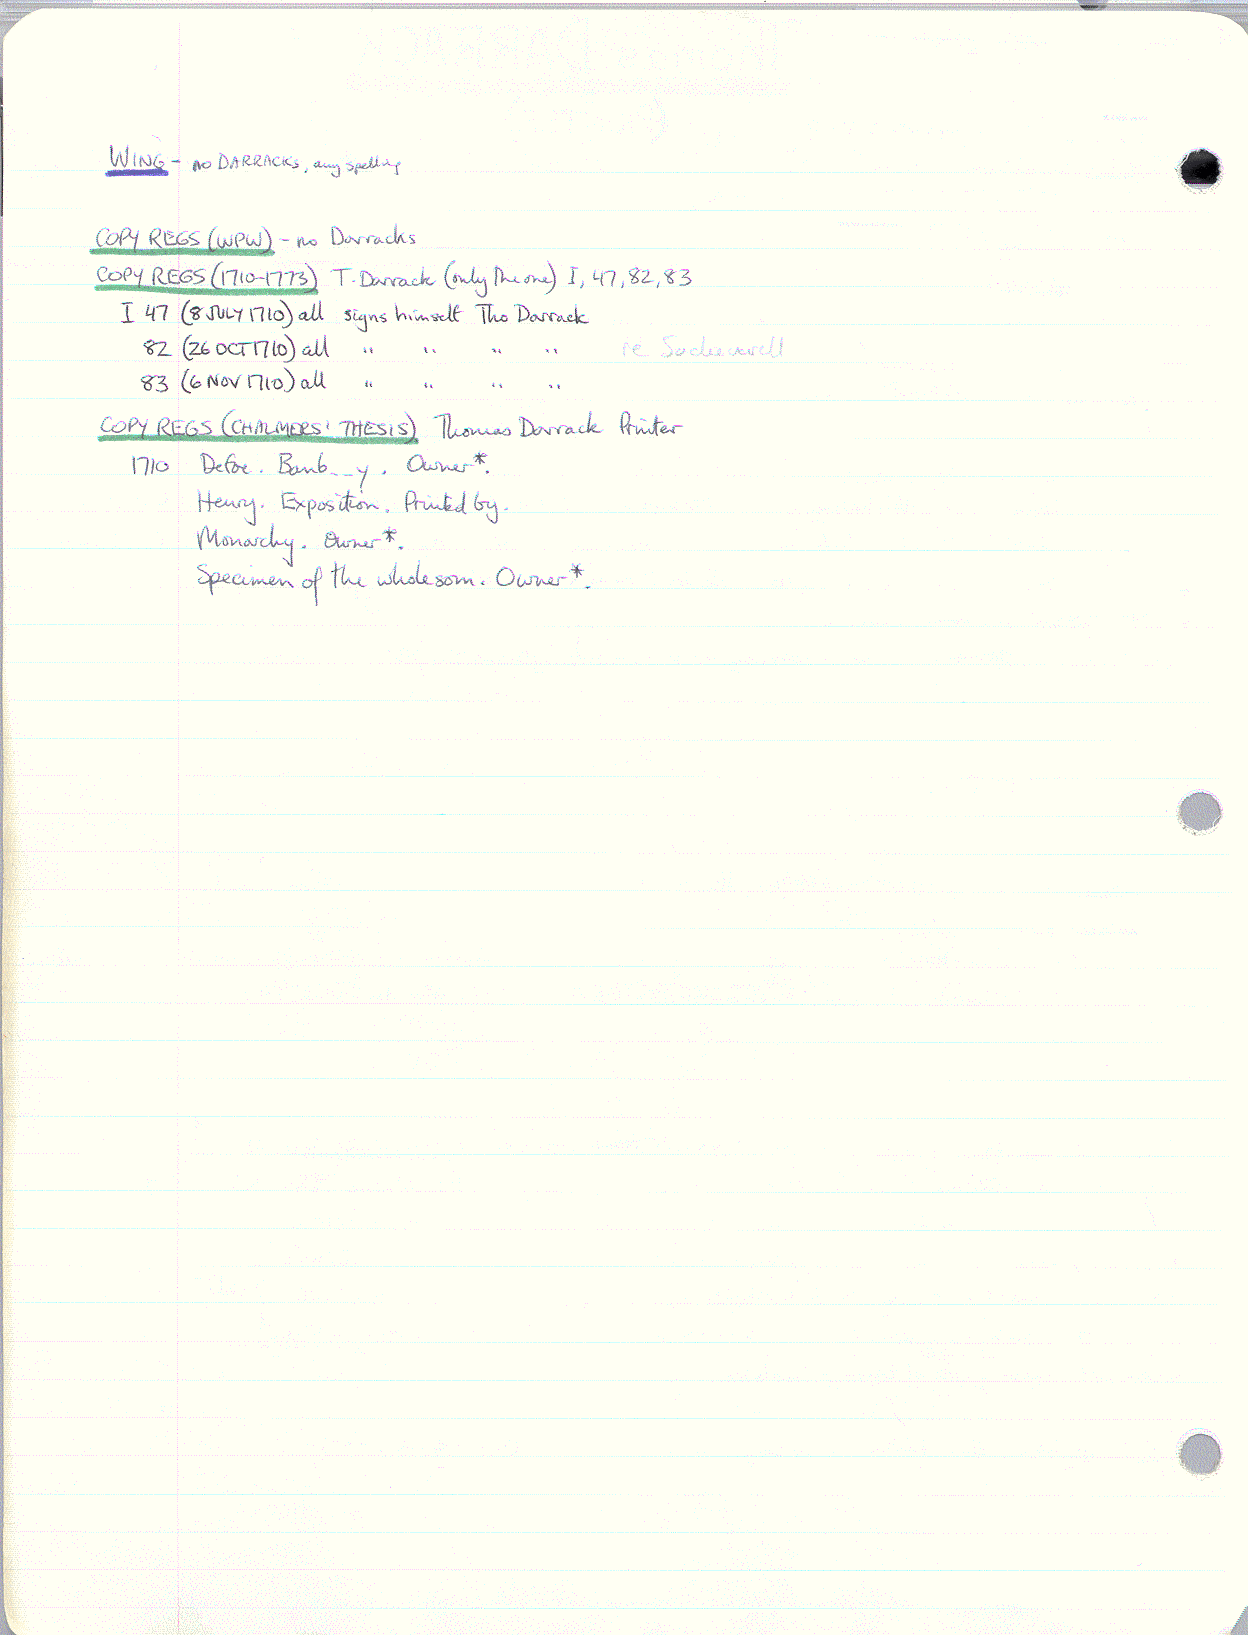 WING - no DARRACKS, any spelling
COPY REGS (WPW) - no Darracks
COPY REGS (1710-1773) T. Darrack (only the one) I, 47, 82, 83
I 47 (8 JULY 1710) all signs himself Tho Darrack
82 (26 OCT 1710) all " " " " re Sacheverell
83 (6 NOV 1710) all " " " "
COPY REGS (CHALMERS' THESIS) Thomas Darrack Printer
1710 Defoe. Banb__y. Owner*.
Henry. Exposition. Printed by.
Monarchy. Owner*.
Specimen of the wholesom. Owner*.